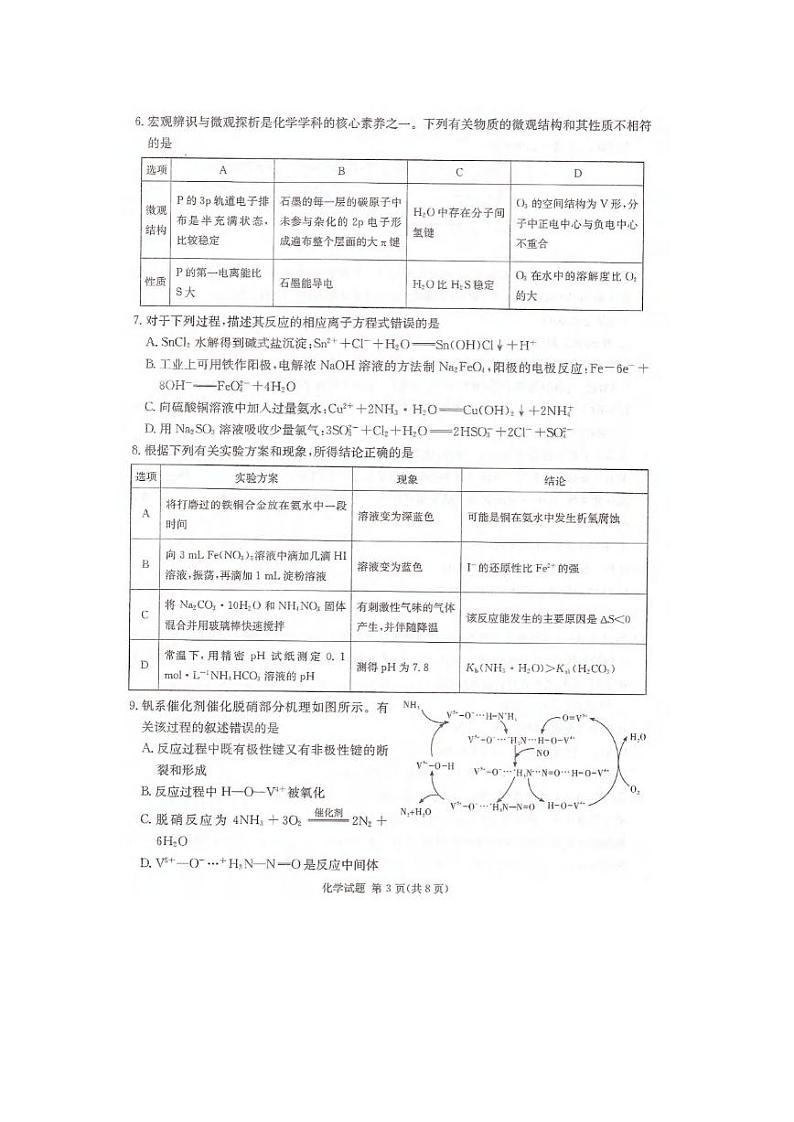 6. 宏观辨识与微观探析是化学学科的核心素养之一。下列有关物质的微观结构和其性质不相符
的是
选项 A B C D
微观结构
P 的 3p 轨道电子排
布是半充满状态，
比较稳定
石墨的每一层的碳原子中
未参与杂化的 2p 电子形
成遍布整个层面的大 π 键
H₂O 中存在分子间
氢键
O₃ 的空间结构为 V 形，分
子中正电中心与负电中心
不重合
性质
P 的第一电离能比
S 大
石墨能导电
H₂O 比 H₂S 稳定
O₃ 在水中的溶解度比 O₂
的大
7. 对于下列过程，描述其反应的相应离子方程式错误的是
A. SnCl₂ 水解得到碱式盐沉淀：Sn²⁺＋Cl⁻＋H₂O══Sn(OH)Cl↓＋H⁺
B. 工业上可用铁作阳极，电解浓 NaOH 溶液的方法制 Na₂FeO₄，阳极的电极反应：Fe－6e⁻＋
8OH⁻══FeO₄²⁻＋4H₂O
C. 向硫酸铜溶液中加入过量氨水：Cu²⁺＋2NH₃·H₂O══Cu(OH)₂↓＋2NH₄⁺
D. 用 Na₂SO₃ 溶液吸收少量氯气：3SO₃²⁻＋Cl₂＋H₂O══2HSO₃⁻＋2Cl⁻＋SO₄²⁻
8. 根据下列有关实验方案和现象，所得结论正确的是
选项 实验方案 现象 结论
A
将打磨过的铁铜合金放在氨水中一段
时间
溶液变为深蓝色
可能是铜在氨水中发生析氢腐蚀
B
向 3 mL Fe(NO₃)₃ 溶液中滴加几滴 HI
溶液，振荡，再滴加 1 mL 淀粉溶液
溶液变为蓝色
I⁻ 的还原性比 Fe²⁺ 的强
C
将 Na₂CO₃·10H₂O 和 NH₄NO₃ 固体
混合并用玻璃棒快速搅拌
有刺激性气味的气体
产生，并伴随降温
该反应能发生的主要原因是 ΔS<0
D
常温下，用精密 pH 试纸测定 0.1
mol·L⁻¹ NH₄HCO₃ 溶液的 pH
测得 pH 为 7.8
K_b(NH₃·H₂O)>K_a1(H₂CO₃)
9. 钒系催化剂催化脱硝部分机理如图所示。有
关该过程的叙述错误的是
A. 反应过程中既有极性键又有非极性键的断
裂和形成
B. 反应过程中 H—O—V⁴⁺ 被氧化
C. 脱硝反应为 4NH₃＋3O₂ 催化剂══ 2N₂＋
6H₂O
D. V⁵⁺—O⁻…⁺H₃N—N═O 是反应中间体
NH₃
V⁵⁺-O⁻···H-N⁺H₃
O=V⁵⁺
V⁵⁺-O⁻···⁺H₃N···H-O-V⁴⁺
H₂O
NO
V⁵⁺-O-H
V⁵⁺-O⁻···⁺H₃N···N=O···H-O-V⁴⁺
O₂
N₂+H₂O
V⁵⁺-O⁻···⁺H₃N—N=O
H-O-V⁴⁺
化学试题 第 3 页(共 8 页)